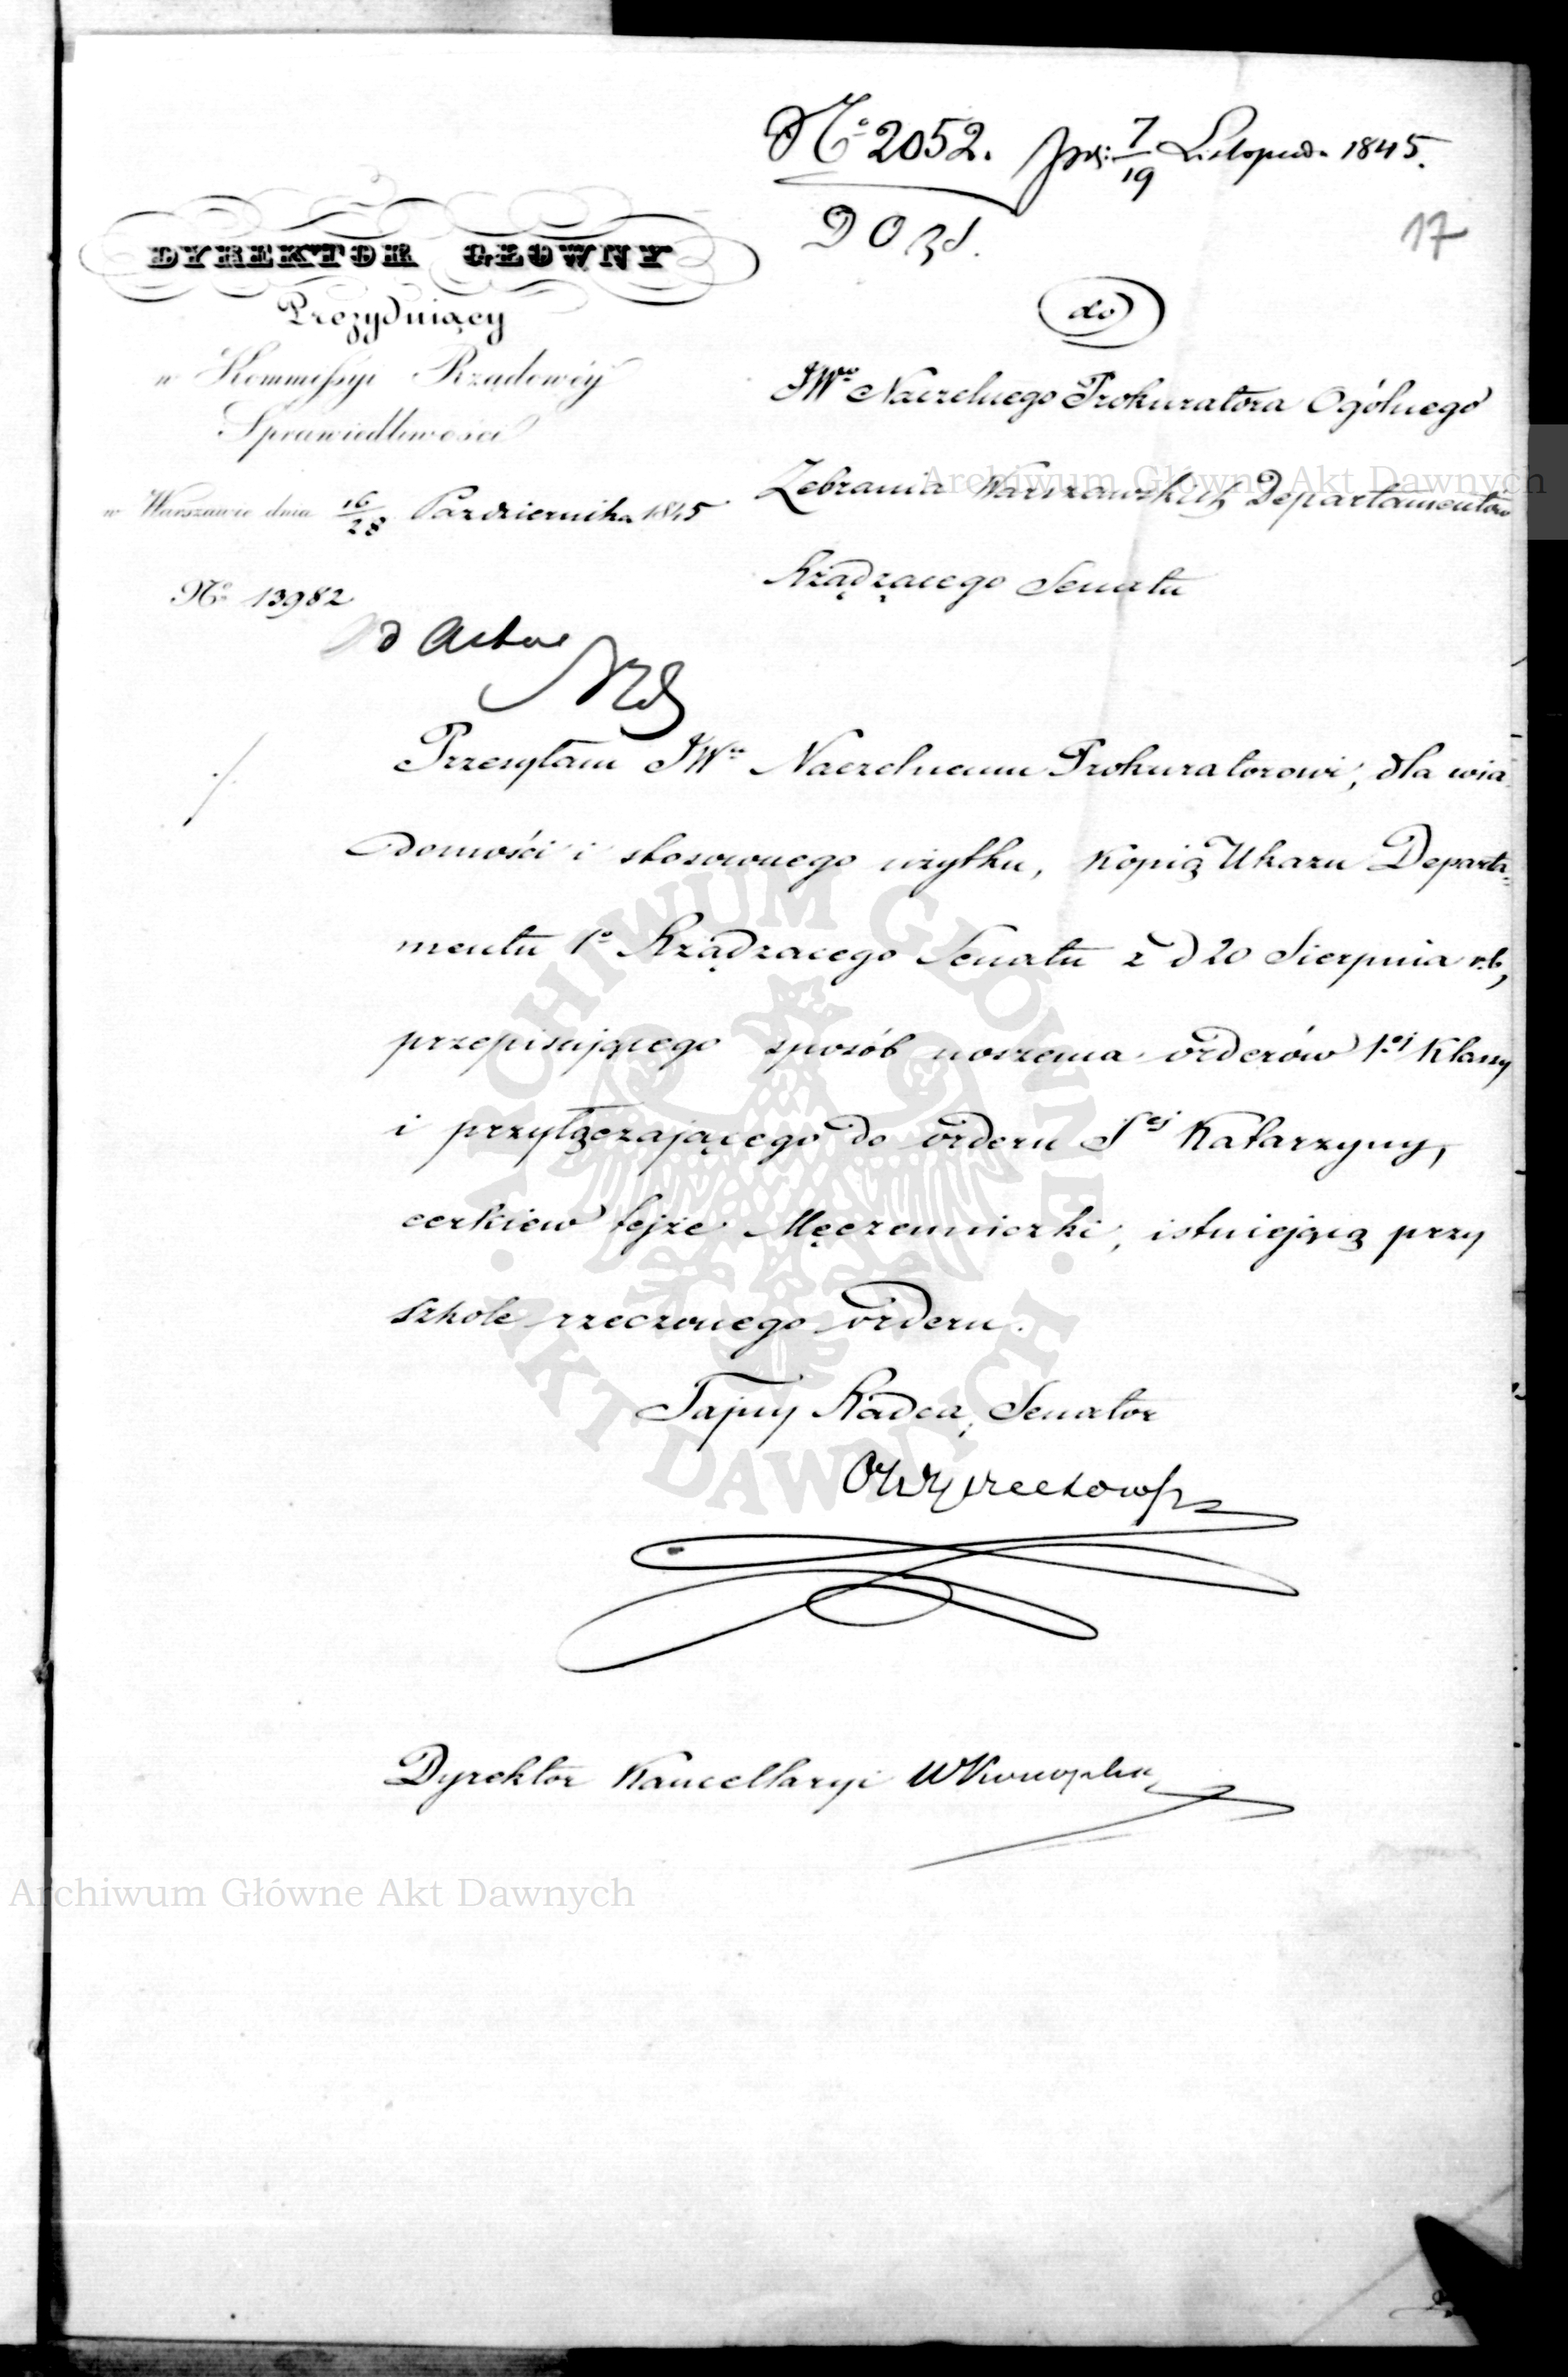 No 2052. prz: 7/19 Listopada 1845.
17
DYREKTOR GŁOWNY
Prezyduiący
w Kommissyi Rządowéy
Sprawiedliwości
w Warszawie dnia 16/28 Października 1845
No 13982
do
JWo Naczelnego Prokuratora Ogólnego
Zebrania Warszawskich Departamentów
Rządzącego Senatu
ad Acta
Przesyłam JWu Naczelnemu Prokuratorowi, dla wia
domości i stosownego użytku, kopią Ukazu Departa-
mentu 1o Rządzącego Senatu z d 20 Sierpnia r.b,
przepisującego sposób noszenia orderów 1ej Klassy
i przyłączającego do orderu Sej Katarzyny,
cerkiew tejże Męczenniczki, istniejącą przy
szkole rzeczonego orderu.
Tajny Radca, Senator
OWyczechowski
Dyrektor Kancellaryi
Archiwum Główne Akt Dawnych
ARCHIWUM GŁÓWNE AKT DAWNYCH
Archiwum Główne Akt Dawnych